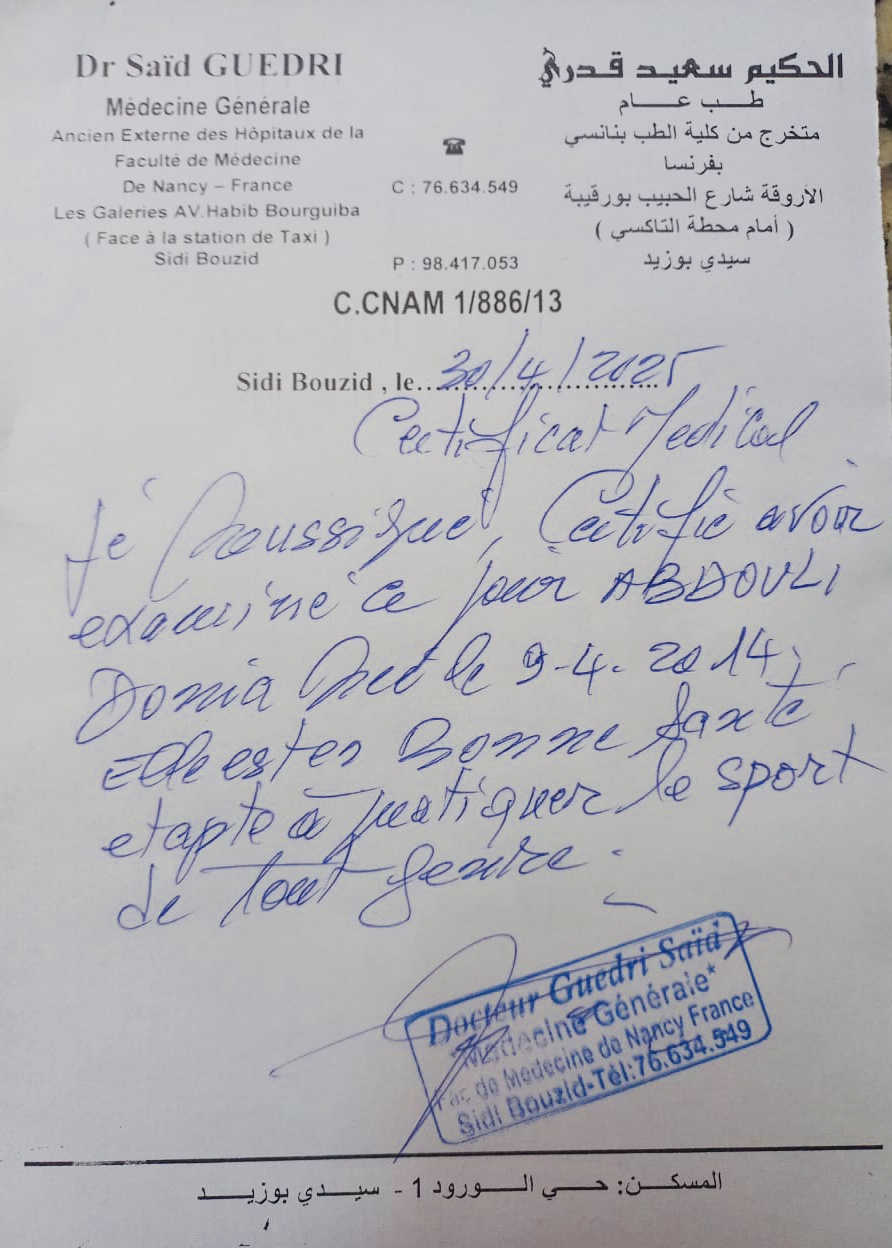 Dr Saïd GUEDRI
Médecine Générale
Ancien Externe des Hôpitaux de la
Faculté de Médecine
De Nancy – France
Les Galeries AV.Habib Bourguiba
( Face à la station de Taxi )
Sidi Bouzid
☎
C : 76.634.549
P : 98.417.053
الحكيم سعيد قدري
طب عام
متخرج من كلية الطب بنانسي
بفرنسا
الأروقة شارع الحبيب بورقيبة
( أمام محطة التاكسي )
سيدي بوزيد
C.CNAM 1/886/13
Sidi Bouzid , le 30/4/2025
Certificat Medical
Je soussigné, Certifie avoir
examiné ce jour ABDOULI
Donia Née le 9-4-2014,
Elle est en Bonne Santé
et apte à pratiquer le sport
de tout genre.
Docteur Guedri Saïd
*Médecine Générale*
Fac de Médecine de Nancy France
Sidi Bouzid-Tél:76.634.549
المسكن: حي الورود 1 - سيدي بوزيد